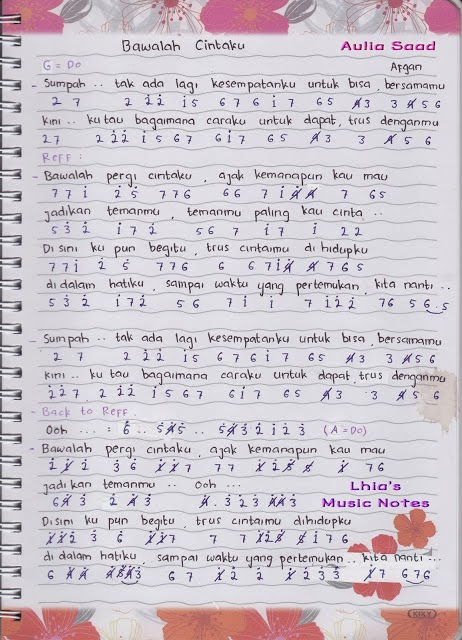 Bawalah Cintaku
Aulia Saad
G = Do
Afgan
- Sumpah .. tak ada lagi kesempatanku untuk bisa, bersamamu
2 7 2 2̇ 2̇ i 5 6 7 6 i 7 6 5 4̸ 3 3 4̸ 5 6
Kini .. ku tau bagaimana caraku untuk dapat, trus denganmu
2 7 2̇ 2̇ 2̇ i 5 6 7 6 i 7 6 5 4̸ 3 3 4̸ 5 6
Reff :
- Bawalah pergi cintaku, ajak kemanapun kau mau
7 7 i 2̇ 5̇ 7 7 6 6 6 7 i 4̸ 4̸ 7 6 5
jadikan temanmu, temanmu paling kau cinta ..
5̇ 3̇ 2̇ i 7 2̇ 5 6 7 i 7 i 2̇ 2̇
Di sini ku pun begitu, trus cintaimu di hidupku
7 7 i 2̇ 5̇ 7 7 6 6 6 7 i 4̸ 4̸ 7 6 5
di dalam hatiku, sampai waktu yang pertemukan, kita nanti ..
5̇ 3̇ 2̇ i 7 2̇ 5 6 7 i i 7 i 2̇ 2̇ 7 6 5 6 . 5
- Sumpah .. tak ada lagi kesempatanku untuk bisa, bersamamu
2 7 2 2̇ 2̇ i 5 6 7 6 i 7 6 5 4̸ 3 3 4̸ 5 6
Kini .. ku tau bagaimana caraku untuk dapat, trus denganmu
2̇ 2̇ 7 . 2 2̇ 2̇ i 5 6 7 6 i 7 6 5 4̸ 3 3 4̸ 5 6
- Back to Reff.
Ooh ... :
(A = Do)
- Bawalah pergi cintaku, ajak kemanapun kau mau
jadikan temanmu .. Ooh ...
Lhia's
Music Notes
Disini ku pun begitu, trus cintaimu dihidupku
di dalam hatiku, sampai waktu yang pertemukan .. kita nanti ...
KIKY